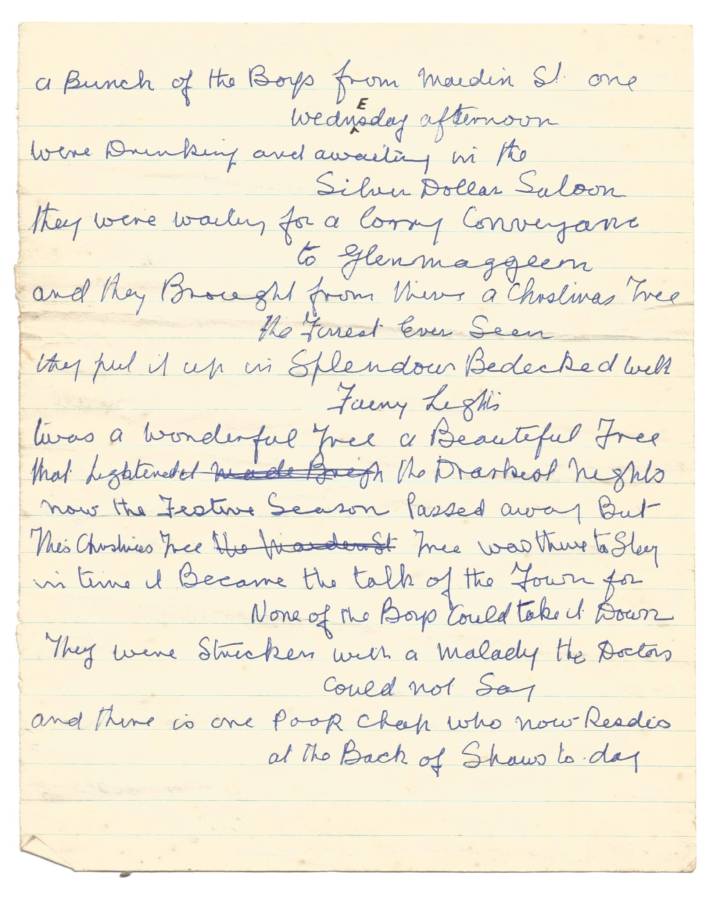 a Bunch of the Boys from Maiden St. one
WednEsday afternoon
were Drinking and awaiting in the
Silver Dollar Saloon
they were waiting for a lorry Conveyance
to Glenmaggeen
and they Brought from there a Christmas Tree
the Finest Ever Seen
they put it up in Splendour Bedecked with
Faery Lights
twas a wonderful Tree a Beautiful Tree
that Lightened made Brigh the Darkest nights
now the Festive Season Passed away But
This Christmas Tree the Maiden St Tree was there to Stay
in time it Became the talk of the Town for
None of the Boys Could take it Down
They were Stricken with a Malady the Doctors
Could not Say
and there is one Poor Chap who now Resdies
at the Back of Shaws to-day